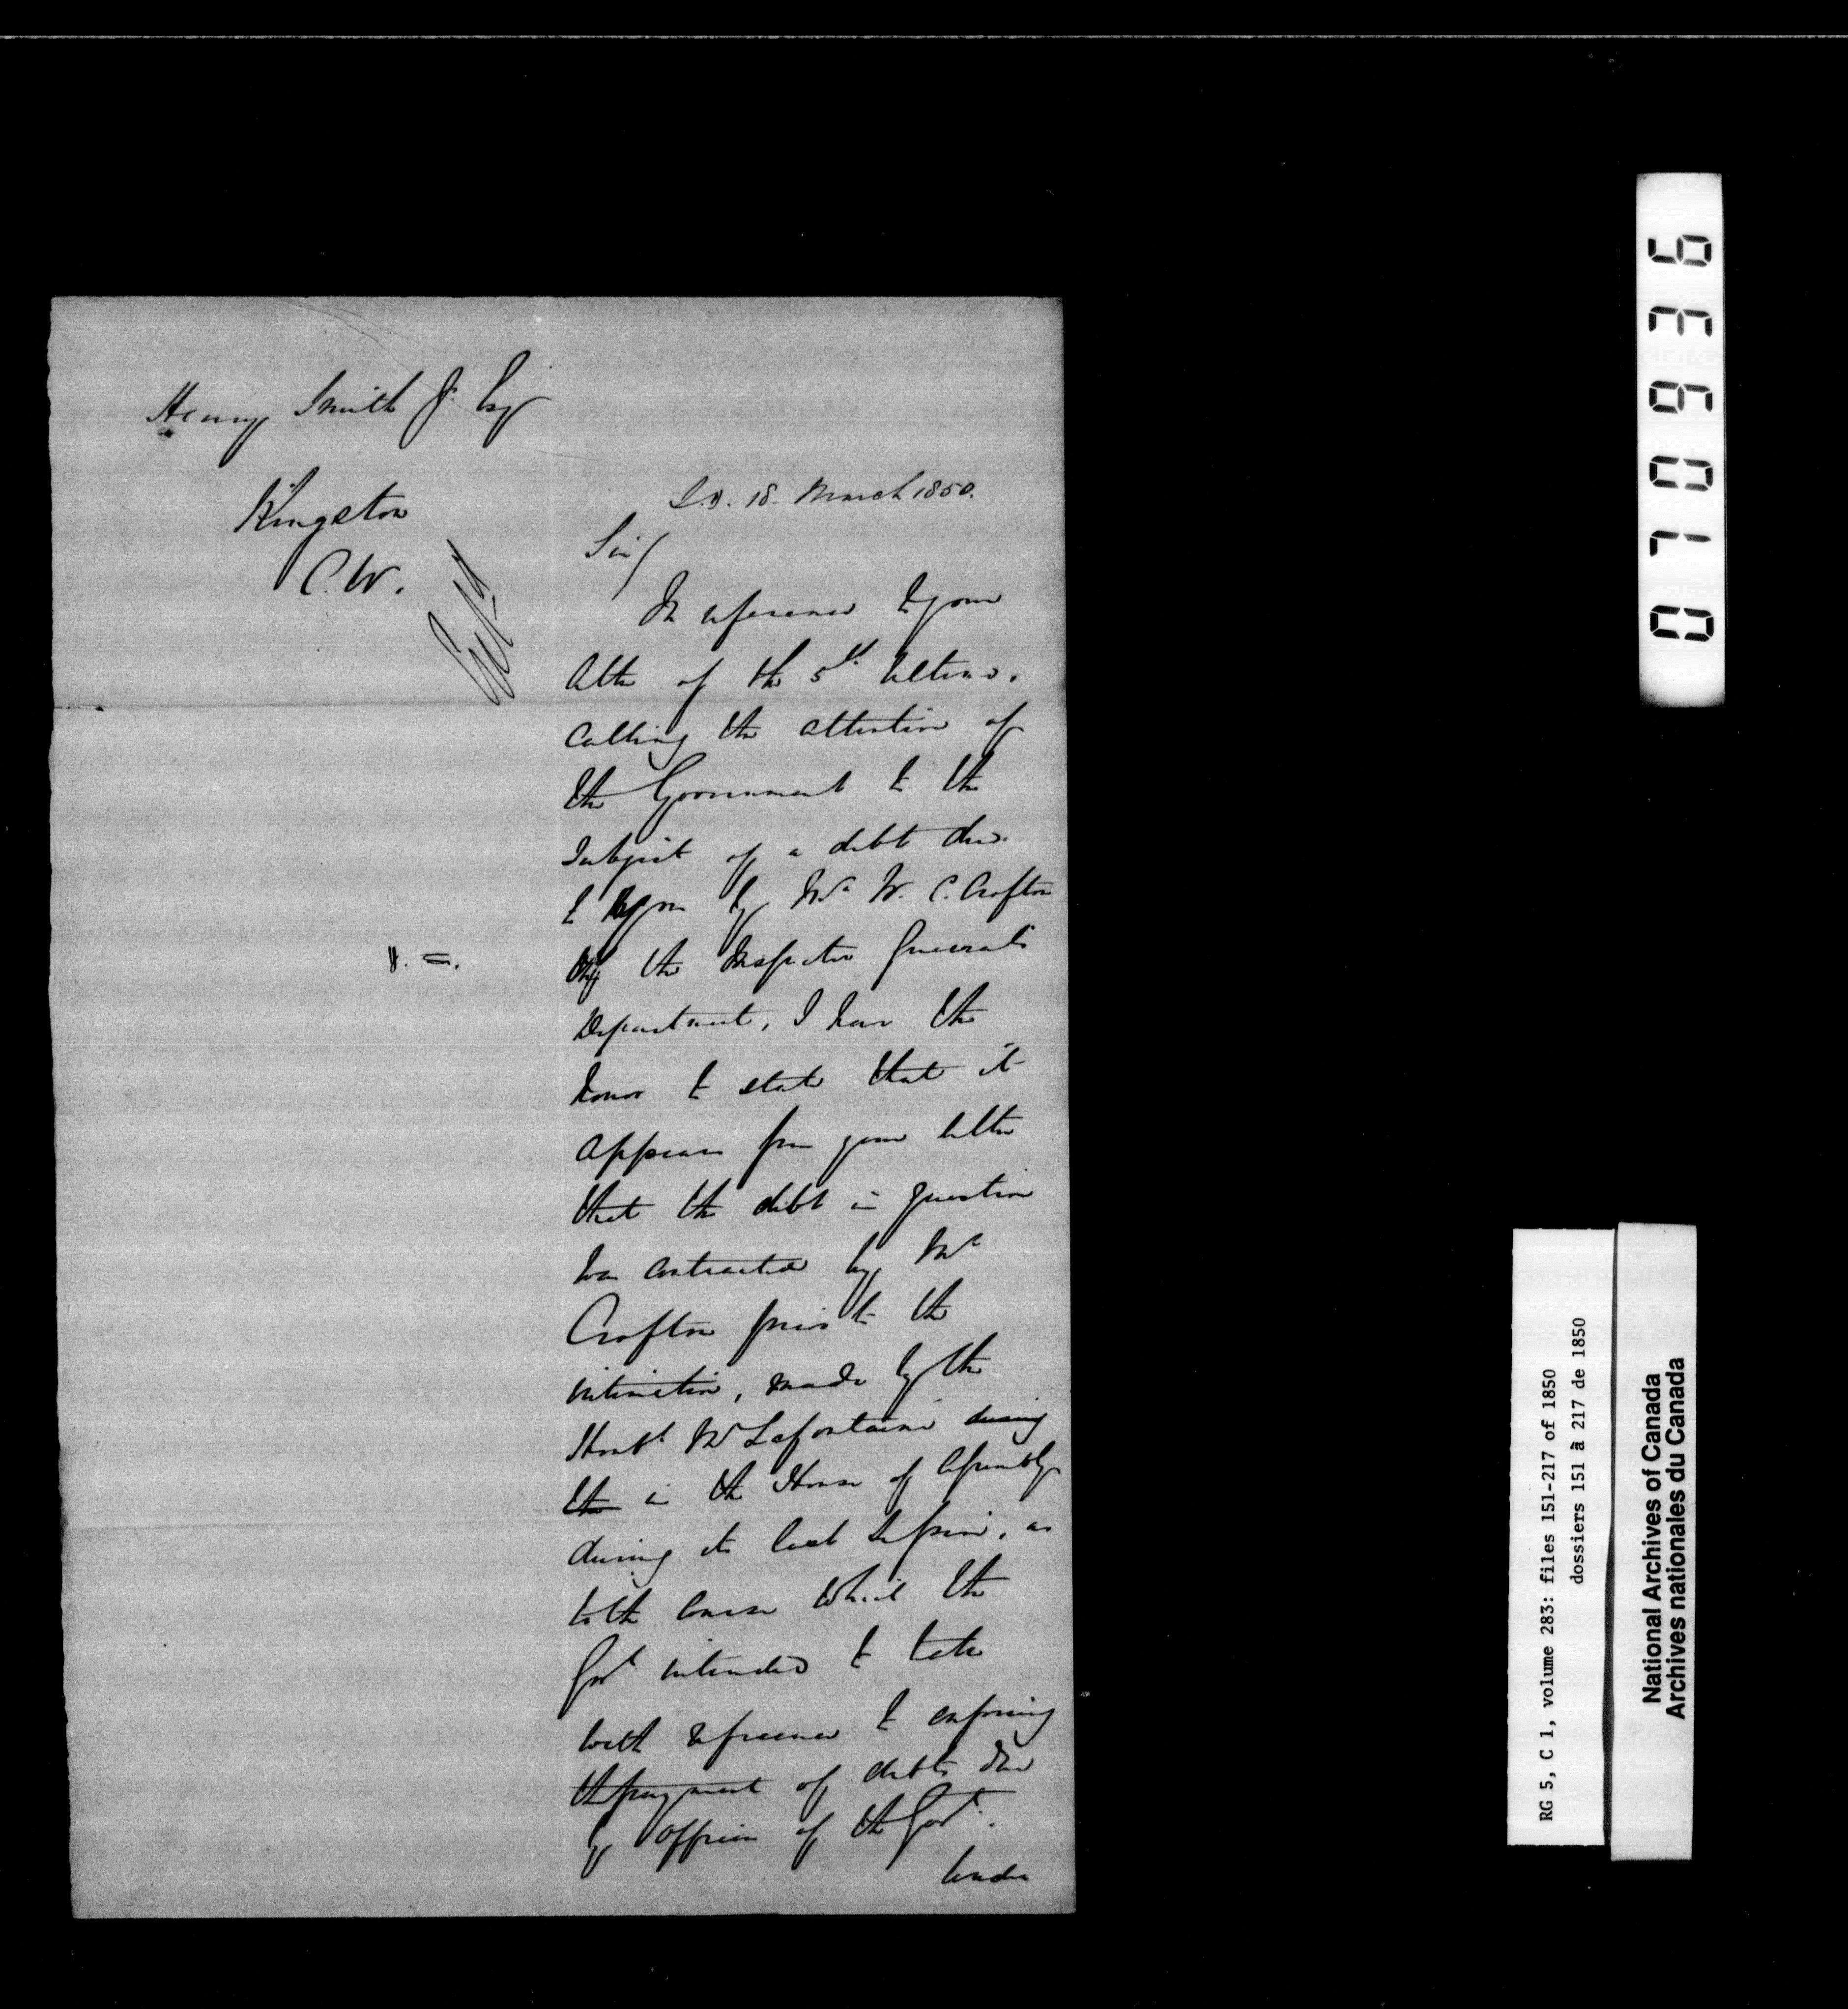 Henry Smith Jr. Esq
Kingston
C.W.
S.O. 18. March 1850.
Sir/
In reference to your
letter of the 5th Ultimo.
calling the attention of
the Government to the
subject of a debt due
to you by Mr W. C. Crofton
of the Inspector General's
Department, I have the
honor to state that it
appears from your letter
that the debt in question
was contracted by Mr
Crofton prior to the
intimation, made by the
Honble Mr Lafontaine during
the in the House of Assembly
during its last Session, as
to the course which the
Govt intended to take
with reference to enforcing
the payment of debts due
by Officers of the Govt.
Under
070936
RG 5, C 1, volume 283: files 151-217 of 1850
dossiers 151 à 217 de 1850
National Archives of Canada
Archives nationales du Canada